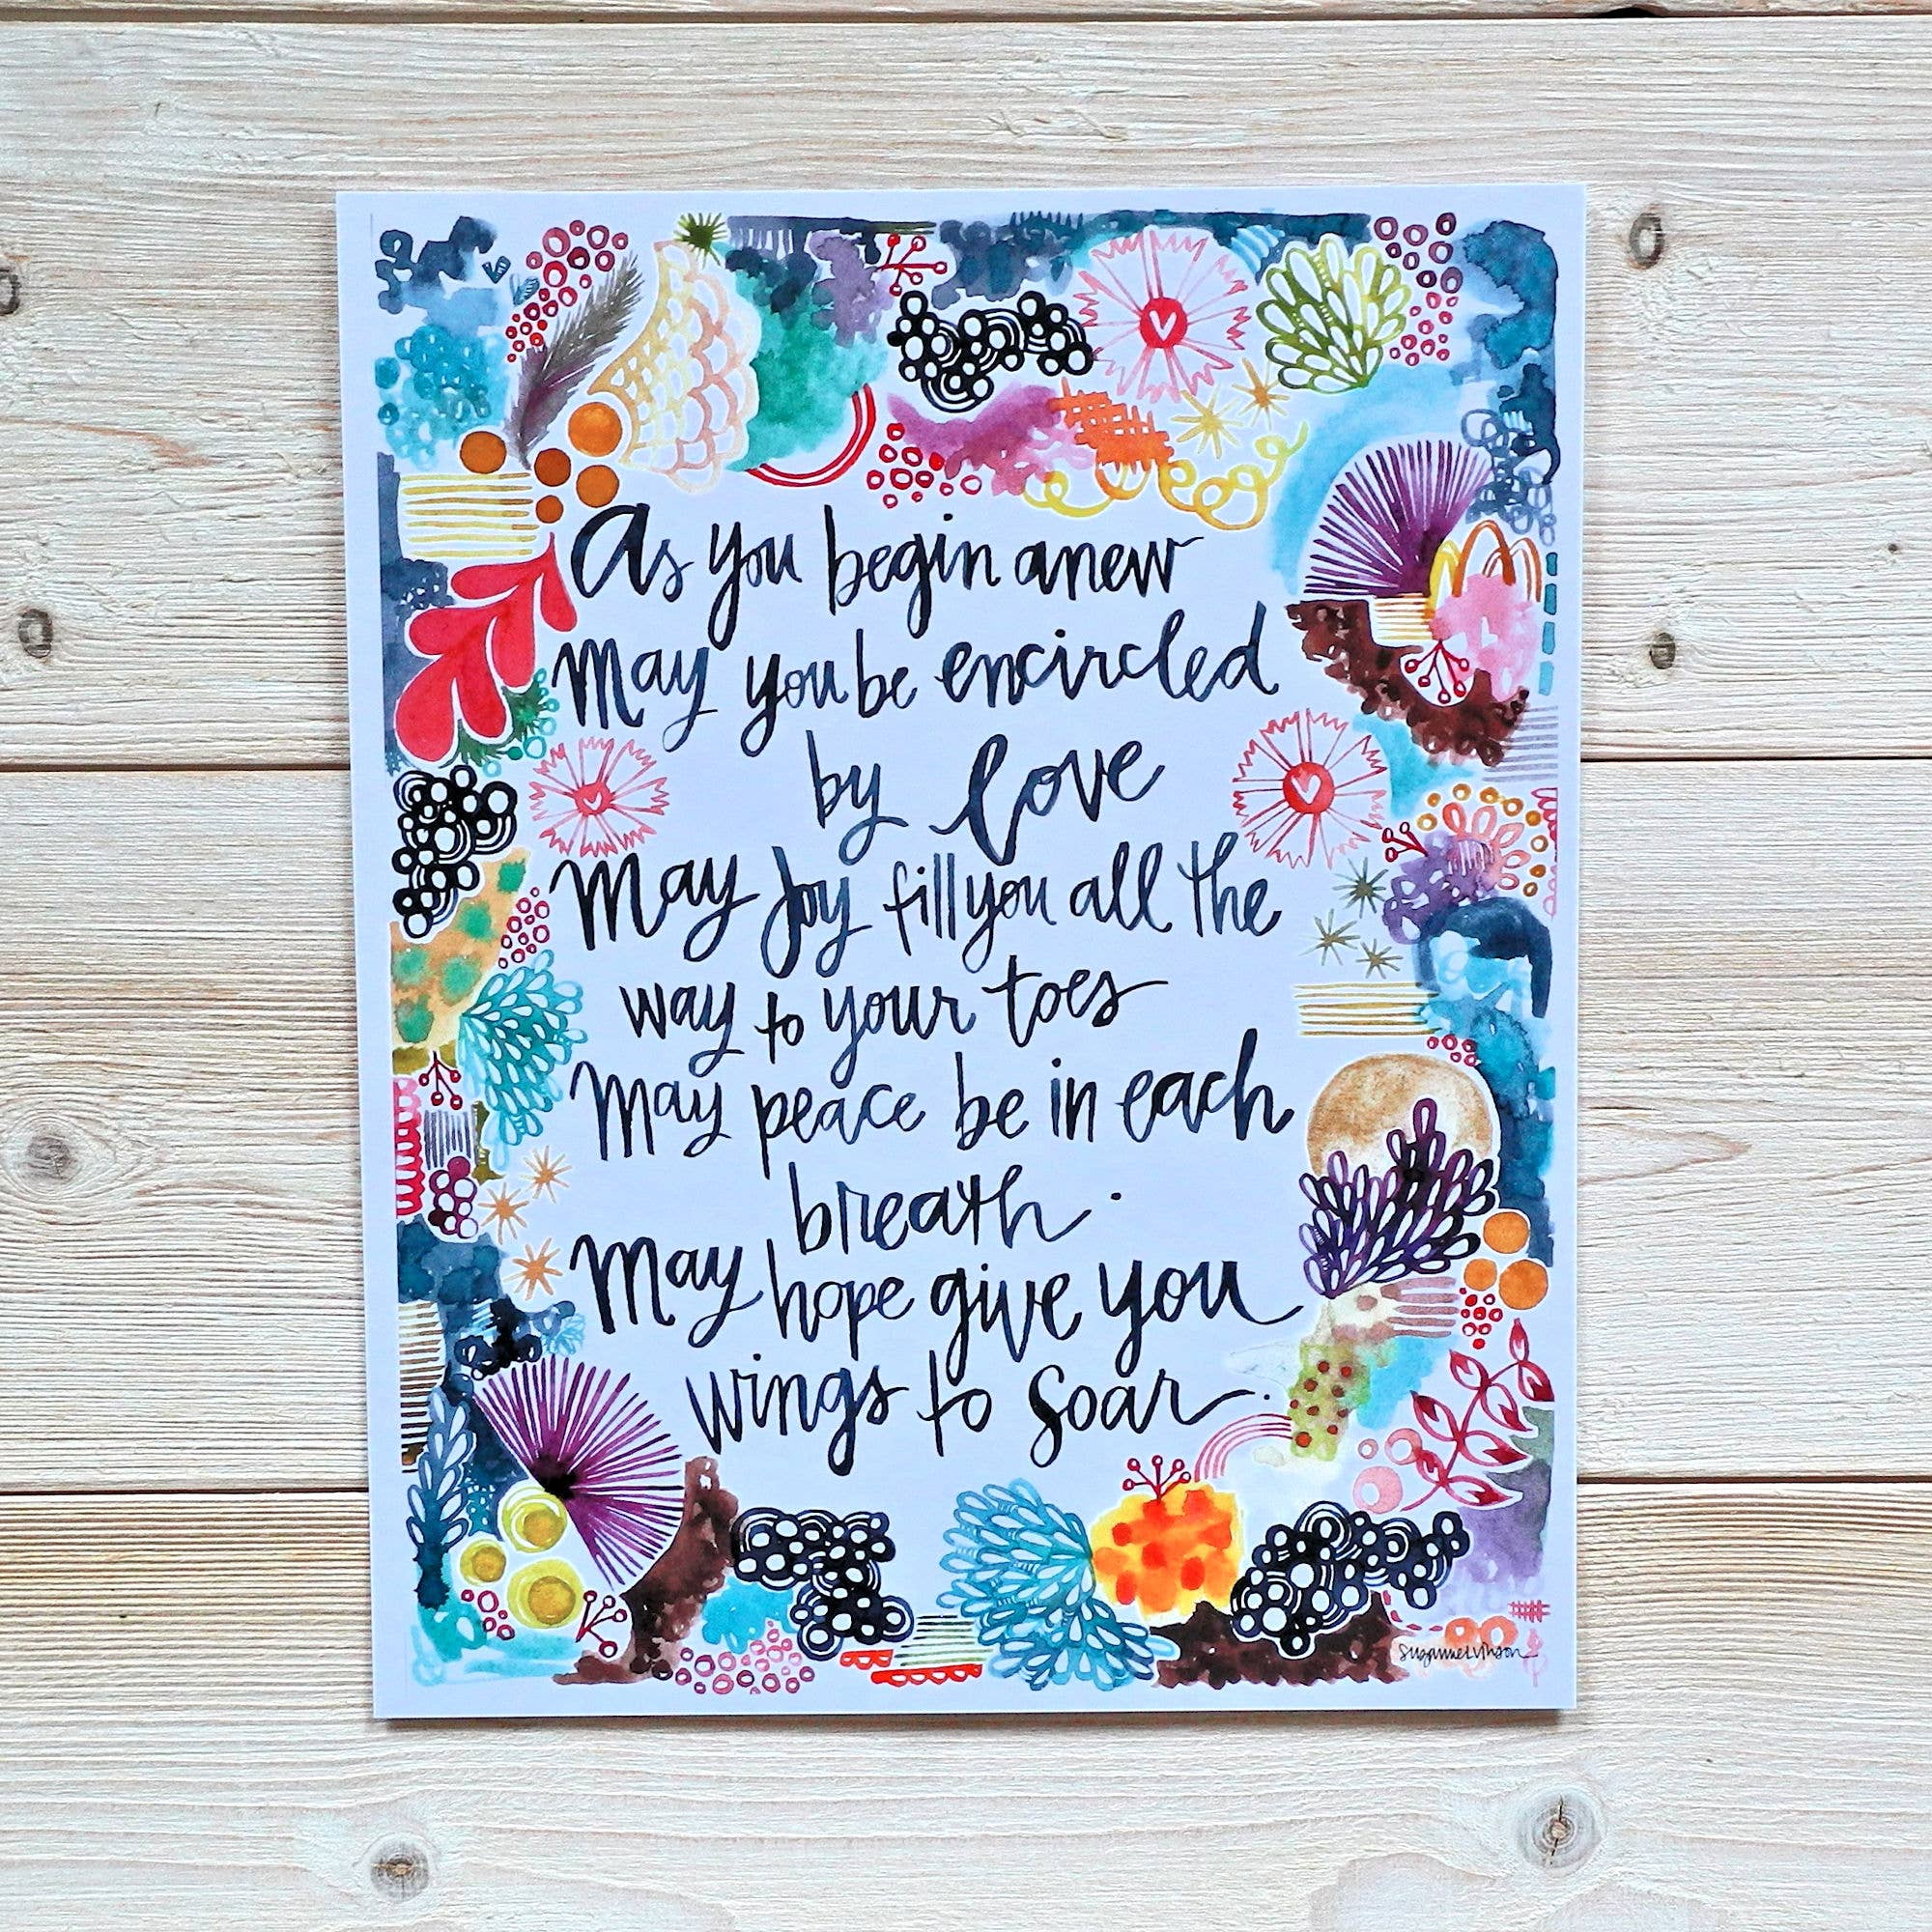 As you begin anew
May you be encircled
by love
May Joy fill you all the
way to your toes
May peace be in each
breath.
May hope give you
wings to soar.
SuzanneLVinson